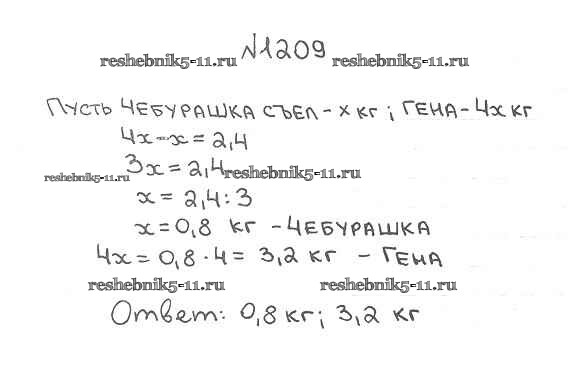 №1209
reshebnik5-11.ru reshebnik5-11.ru
Пусть Чебурашка съел - x кг; Гена - 4x кг
4x - x = 2,4
3x = 2,4
reshebnik5-11.ru reshebnik5-11.ru
x = 2,4 : 3
x = 0,8 кг - Чебурашка
4x = 0,8 · 4 = 3,2 кг - Гена
reshebnik5-11.ru reshebnik5-11.ru
Ответ: 0,8 кг; 3,2 кг